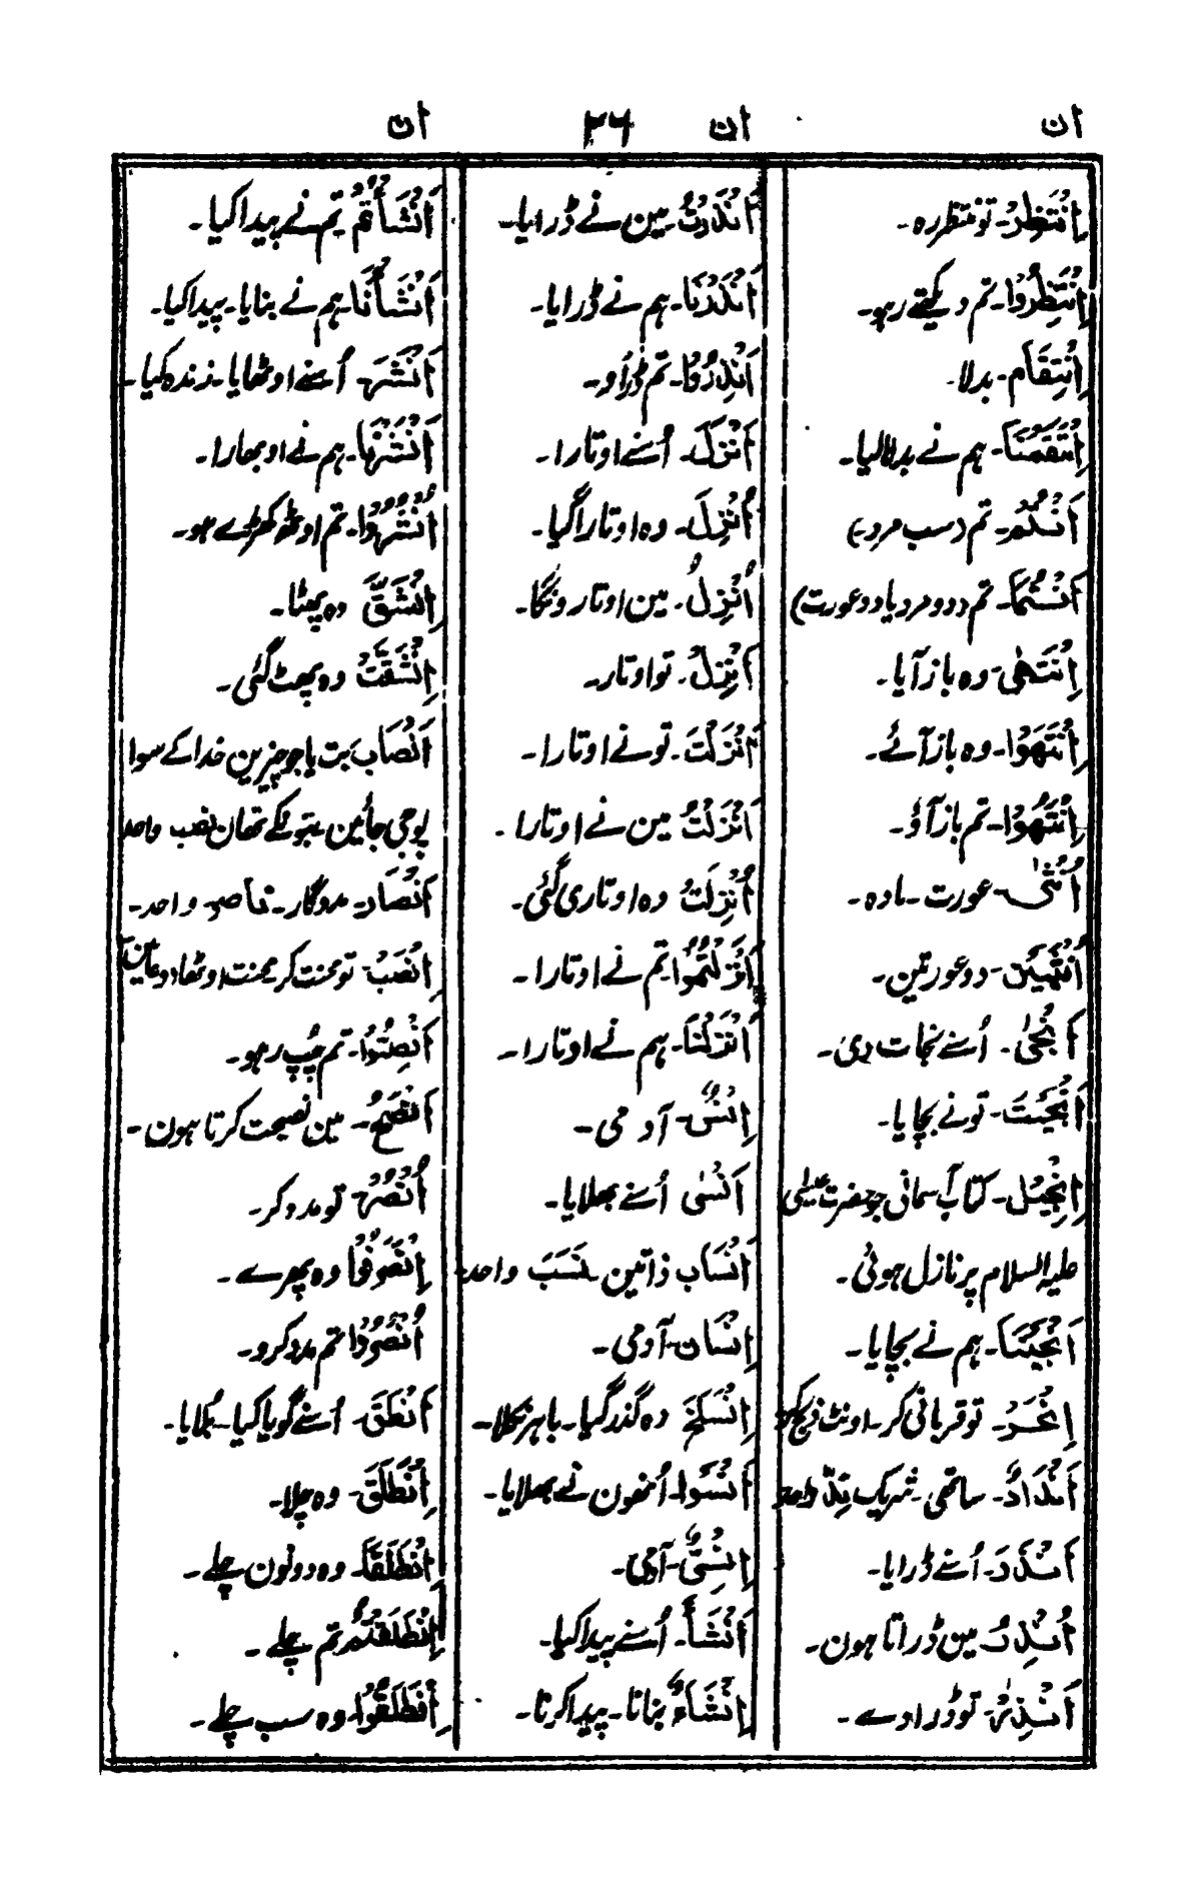 ان
ان
۳۶
ان
اِنْتَظِرْ۔ تو منتظر رہ۔
اِنْتَظِرُوْا۔ تم دیکھتے رہو۔
اِنْتِقَام۔ بدلا۔
اِنْتَقَمْنَا۔ ہم نے بدلا لیا۔
اَنْتُمْ۔ تم (سب مرد۔)
اَنْتُمَا۔ تم (دو مرد یا دو عورت)
اِنْتَهٰى۔ وہ باز آیا۔
اِنْتَهَوْا۔ وہ باز آئے۔
اِنْتَهُوْا۔ تم باز آؤ۔
اُنْثٰى۔ عورت۔ مادہ۔
اُنْثَيَيْن۔ دو عورتین۔
اَنْجٰى۔ اُسنے نجات دی۔
اَنْجَيْتَ۔ تونے بچایا۔
اِنْجِيْل۔ کتاب آسمانی جو حضرت عیسٰی
علیہ السلام پر نازل ہوئی۔
اَنْجَيْنَا۔ ہم نے بچایا۔
اِنْحَرْ۔ تو قربانی کر۔ اونٹ ذبح کر
اَنْدَادٌ۔ ساتھی۔ شریک نِدّ واحد
اَنْذَرَ۔ اُسنے ڈرایا۔
اُنْذِرُ مین ڈراتا ہون۔
اَنْذِرْ۔ تو ڈرا دے۔
اَنْذَرْتُ۔ مین نے ڈرایا۔
اَنْذَرْنَا۔ ہم نے ڈرایا۔
اَنْذِرُوْا۔ تم ڈراو۔
اَنْزَلَ۔ اُسنے اوتارا۔
اُنْزِلَ۔ وہ اوتارا گیا۔
اُنْزِلُ۔ مین اوتارونگا۔
اَنْزِلْ۔ تو اوتار۔
اَنْزَلْتَ۔ تونے اوتارا۔
اَنْزَلْتُ مین نے اوتارا۔
اُنْزِلَتْ وہ اوتاری گئی۔
اَنْزَلْتُمُوْا تم نے اوتارا۔
اَنْزَلْنَا۔ ہم نے اوتارا۔
اِنْسٌ۔ آدمی۔
اَنْسٰى اُسنے بھلایا۔
اَنْسَاب ذاتین نَسَبَ واحد۔
اِنْسَان۔ آدمی۔
اِنْسَلَخَ وہ گذر گیا۔ باہر نکلا۔
اَنْسَوْا۔ اُنھون نے بھلایا۔
اِنْسِيٌّ۔ آدمی۔
اَنْشَأَ۔ اُسنے پیدا کیا۔
اِنْشَاءٌ بنانا۔ پیدا کرنا۔
اَنْشَأْتُمْ تم نے پیدا کیا۔
اَنْشَأْنَا۔ ہم نے بنایا۔ پیدا کیا۔
اَنْشَرَ۔ اُسنے اوٹھایا۔ زندہ کیا۔
اَنْشَرْنَا۔ ہم نے اوبھارا۔
اُنْشُزُوْا۔ تم اوٹھ کھڑے ہو۔
اِنْشَقَّ وہ پھٹا۔
اِنْشَقَّتْ وہ پھٹ گئی۔
اَنْصَاب بت یا جو چیزین خدا کے سوا
پوجی جائین بتونکے تھان نصب واحد
اَنْصَار۔ مددگار۔ ناصر واحد۔
اِنْصَبْ۔ تو محنت کر محنت اوٹھا دعا مین
اَنْصِتُوْا۔ تم چُپ رہو۔
اَنْصَحُ۔ مین نصیحت کرتا ہون۔
اُنْصُرْ تو مدد کر۔
اِنْصَرَفُوْا وہ پھرے۔
اُنْصُرُوْا تم مدد کرو۔
اَنْطَقَ۔ اُسنے گویا کیا۔ بُلایا۔
اِنْطَلَقَ۔ وہ چلا۔
اِنْطَلَقَا۔ وہ دونون چلے۔
اِنْطَلَقْتُمْ تم چلے۔
اِنْطَلَقُوْا۔ وہ سب چلے۔